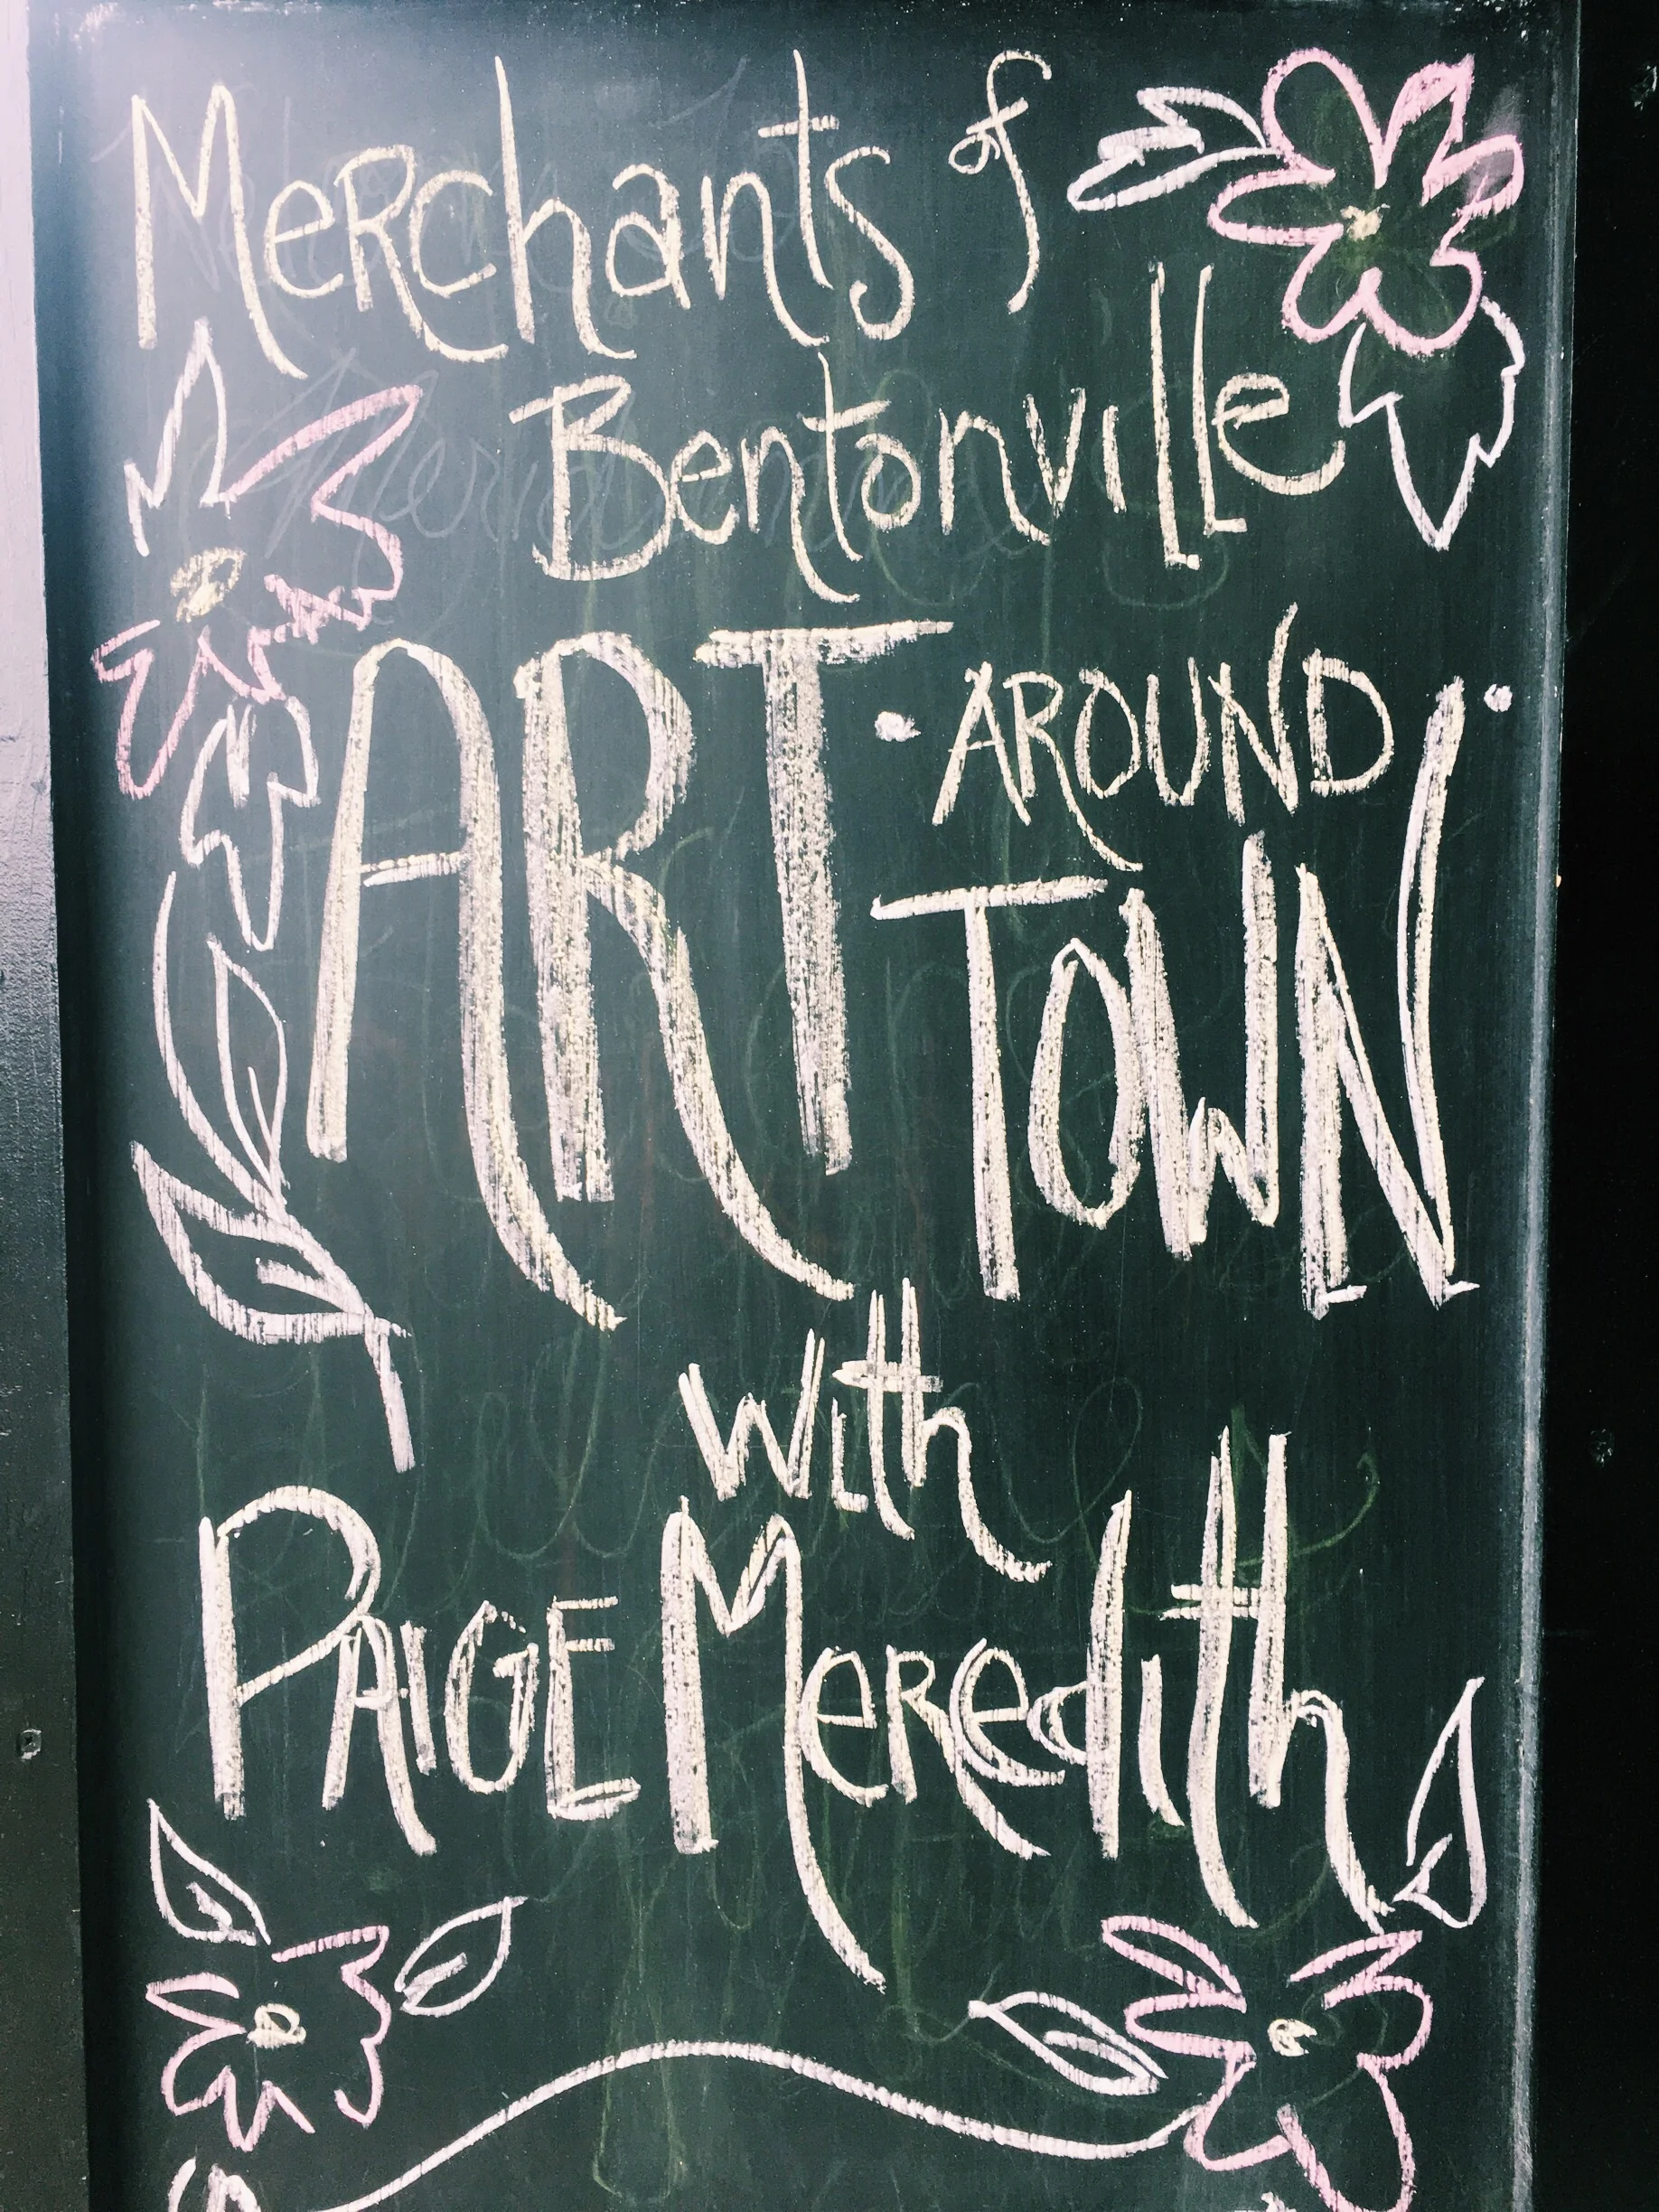 Merchants of
Bentonville
ART · AROUND ·
TOWN
with
PAIGE Meredith